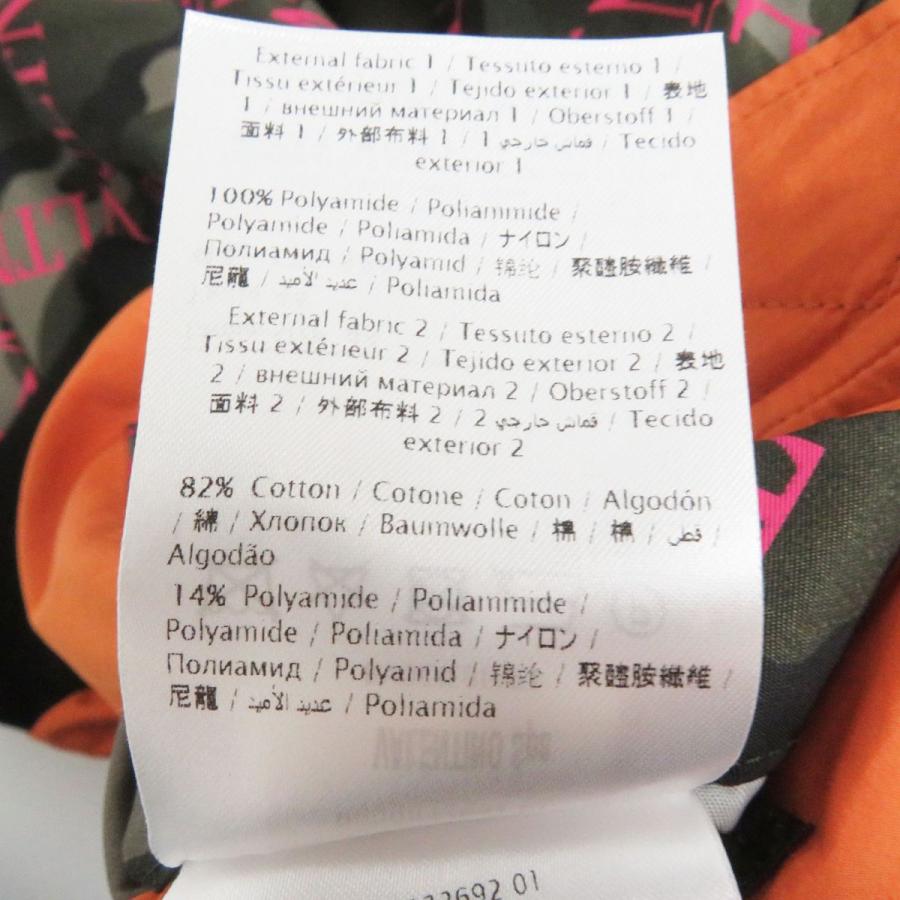 External fabric 1 / Tessuto esterno 1 /
Tissu extérieur 1 / Tejido exterior 1 / 表地
1 / внешний материал 1 / Oberstoff 1 /
面料 1 / 外部布料 1 / قماش خارجي 1 / Tecido
exterior 1
100% Polyamide / Poliammide /
Polyamide / Poliamida / ナイロン /
Полиамид / Polyamid / 锦纶 / 聚醯胺纖維 /
尼龍 / عديد الأميد / Poliamida
External fabric 2 / Tessuto esterno 2 /
Tissu extérieur 2 / Tejido exterior 2 / 表地
2 / внешний материал 2 / Oberstoff 2 /
面料 2 / 外部布料 2 / قماش خارجي 2 / Tecido
exterior 2
82% Cotton / Cotone / Coton / Algodón
/ 綿 / Хлопок / Baumwolle / 棉 / 棉 / قطن /
Algodão
14% Polyamide / Poliammide /
Polyamide / Poliamida / ナイロン /
Полиамид / Polyamid / 锦纶 / 聚醯胺纖維 /
尼龍 / عديد الأميد / Poliamida
VALENTINO SpA
01